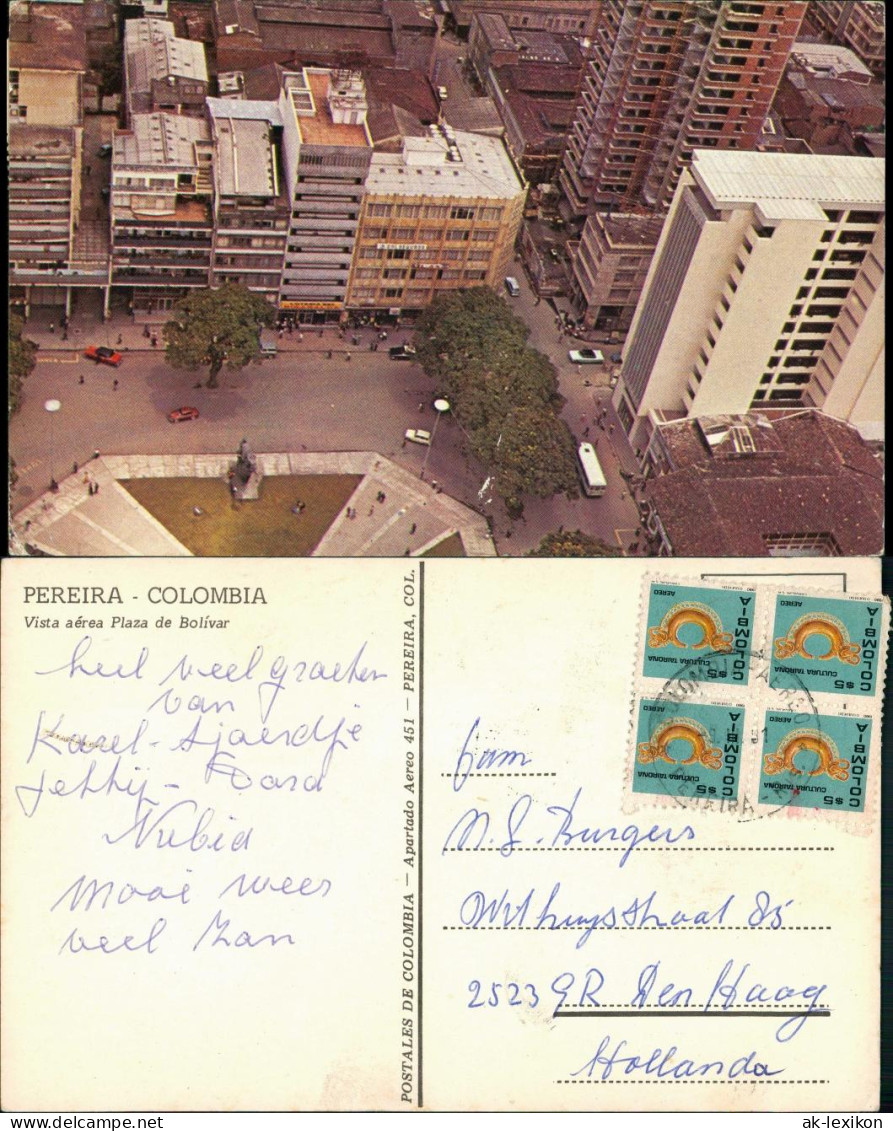 PEREIRA - COLOMBIA
Vista aérea Plaza de Bolívar
heel veel groeten
van
Karel - Sjoerdje
Jettij - Dora
Nubia
Mooi weer
veel zon
POSTALES DE COLOMBIA — Apartado Aereo 451 — PEREIRA, COL.
fam
N. G. Burgers
Withuysstraat 85
2523 GR Den Haag
Hollanda
AEREO
COLOMBIA
CULTURA TAIRONA
$5
AEREO
COLOMBIA
CULTURA TAIRONA
$5
AEREO
COLOMBIA
CULTURA TAIRONA
$5
COLOMBIA
CULTURA TAIRONA
$5
ak-lexikon